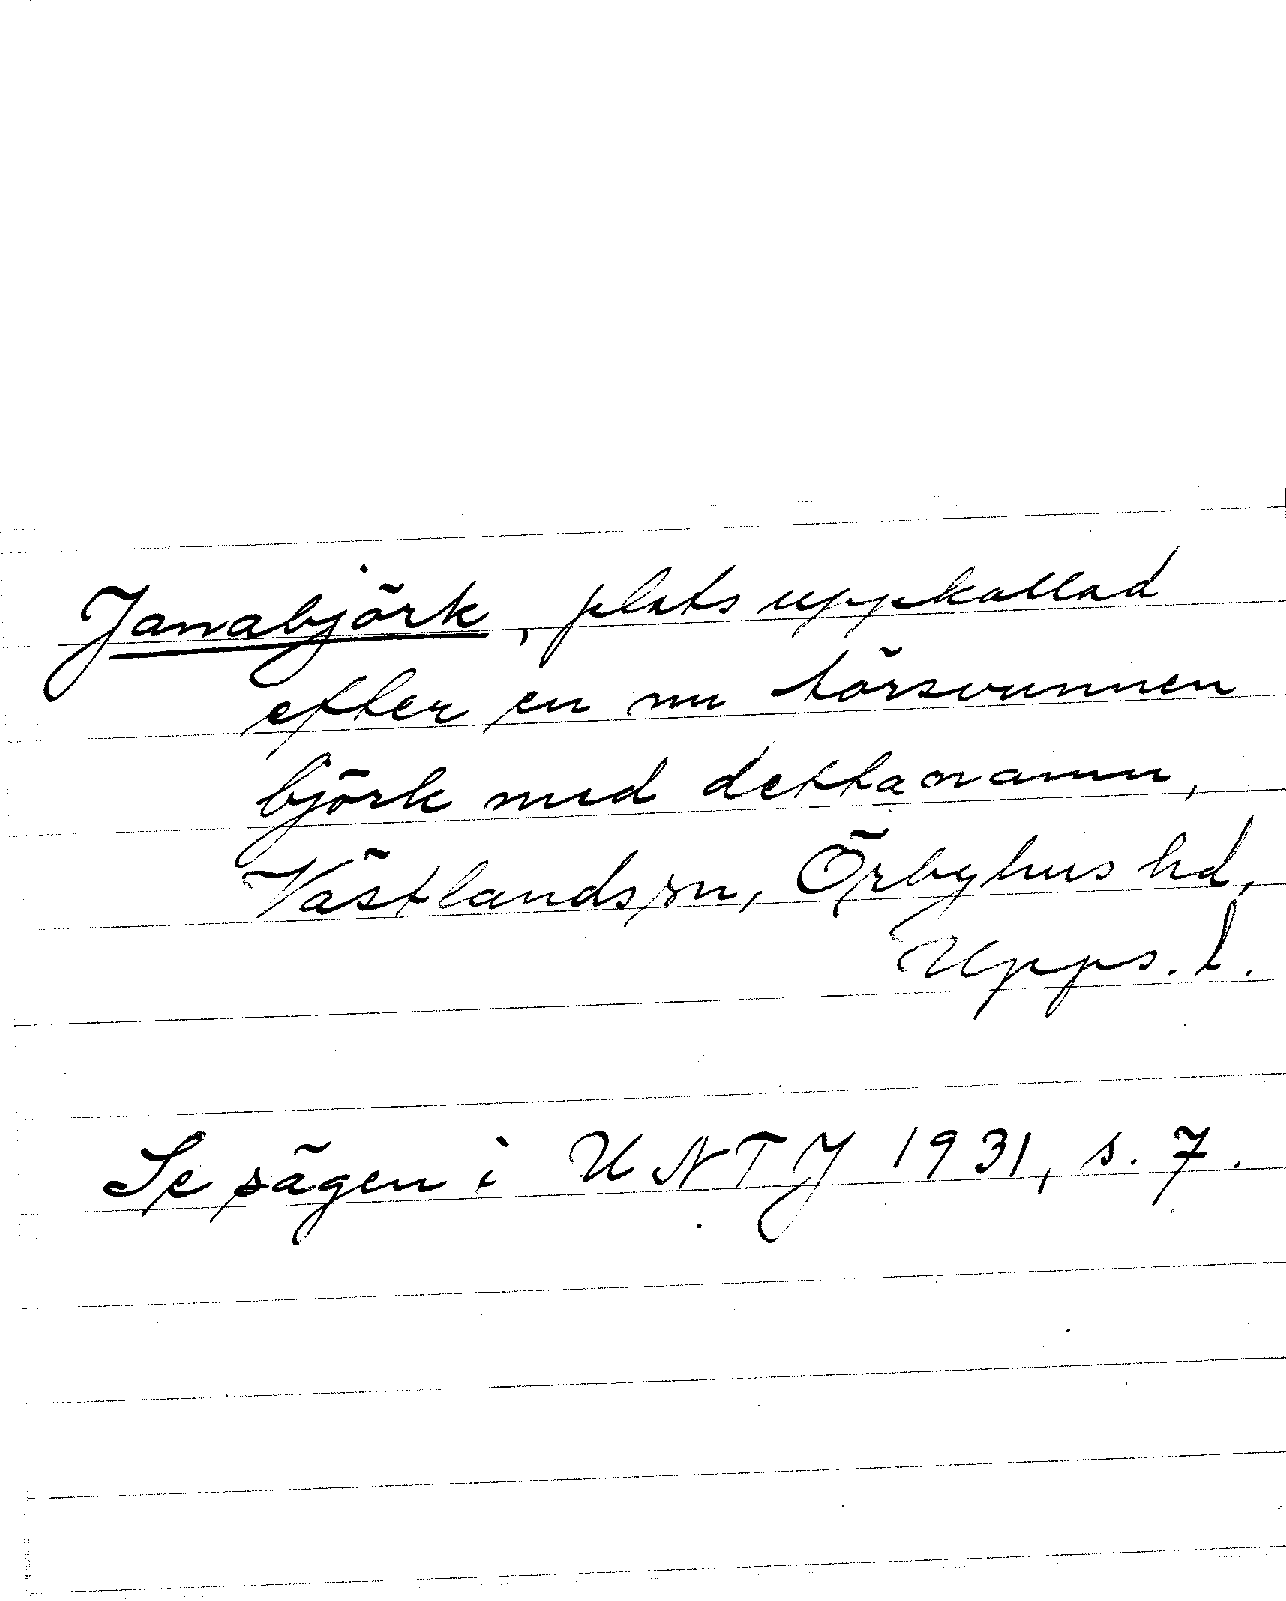 Janabjörk, plats uppkallad
efter en nu försvunnen
björk med detta namn,
Västlands sn, Örbyhus hd,
Upps. l.
Se sägen i UNTJ 1931, s. 7.